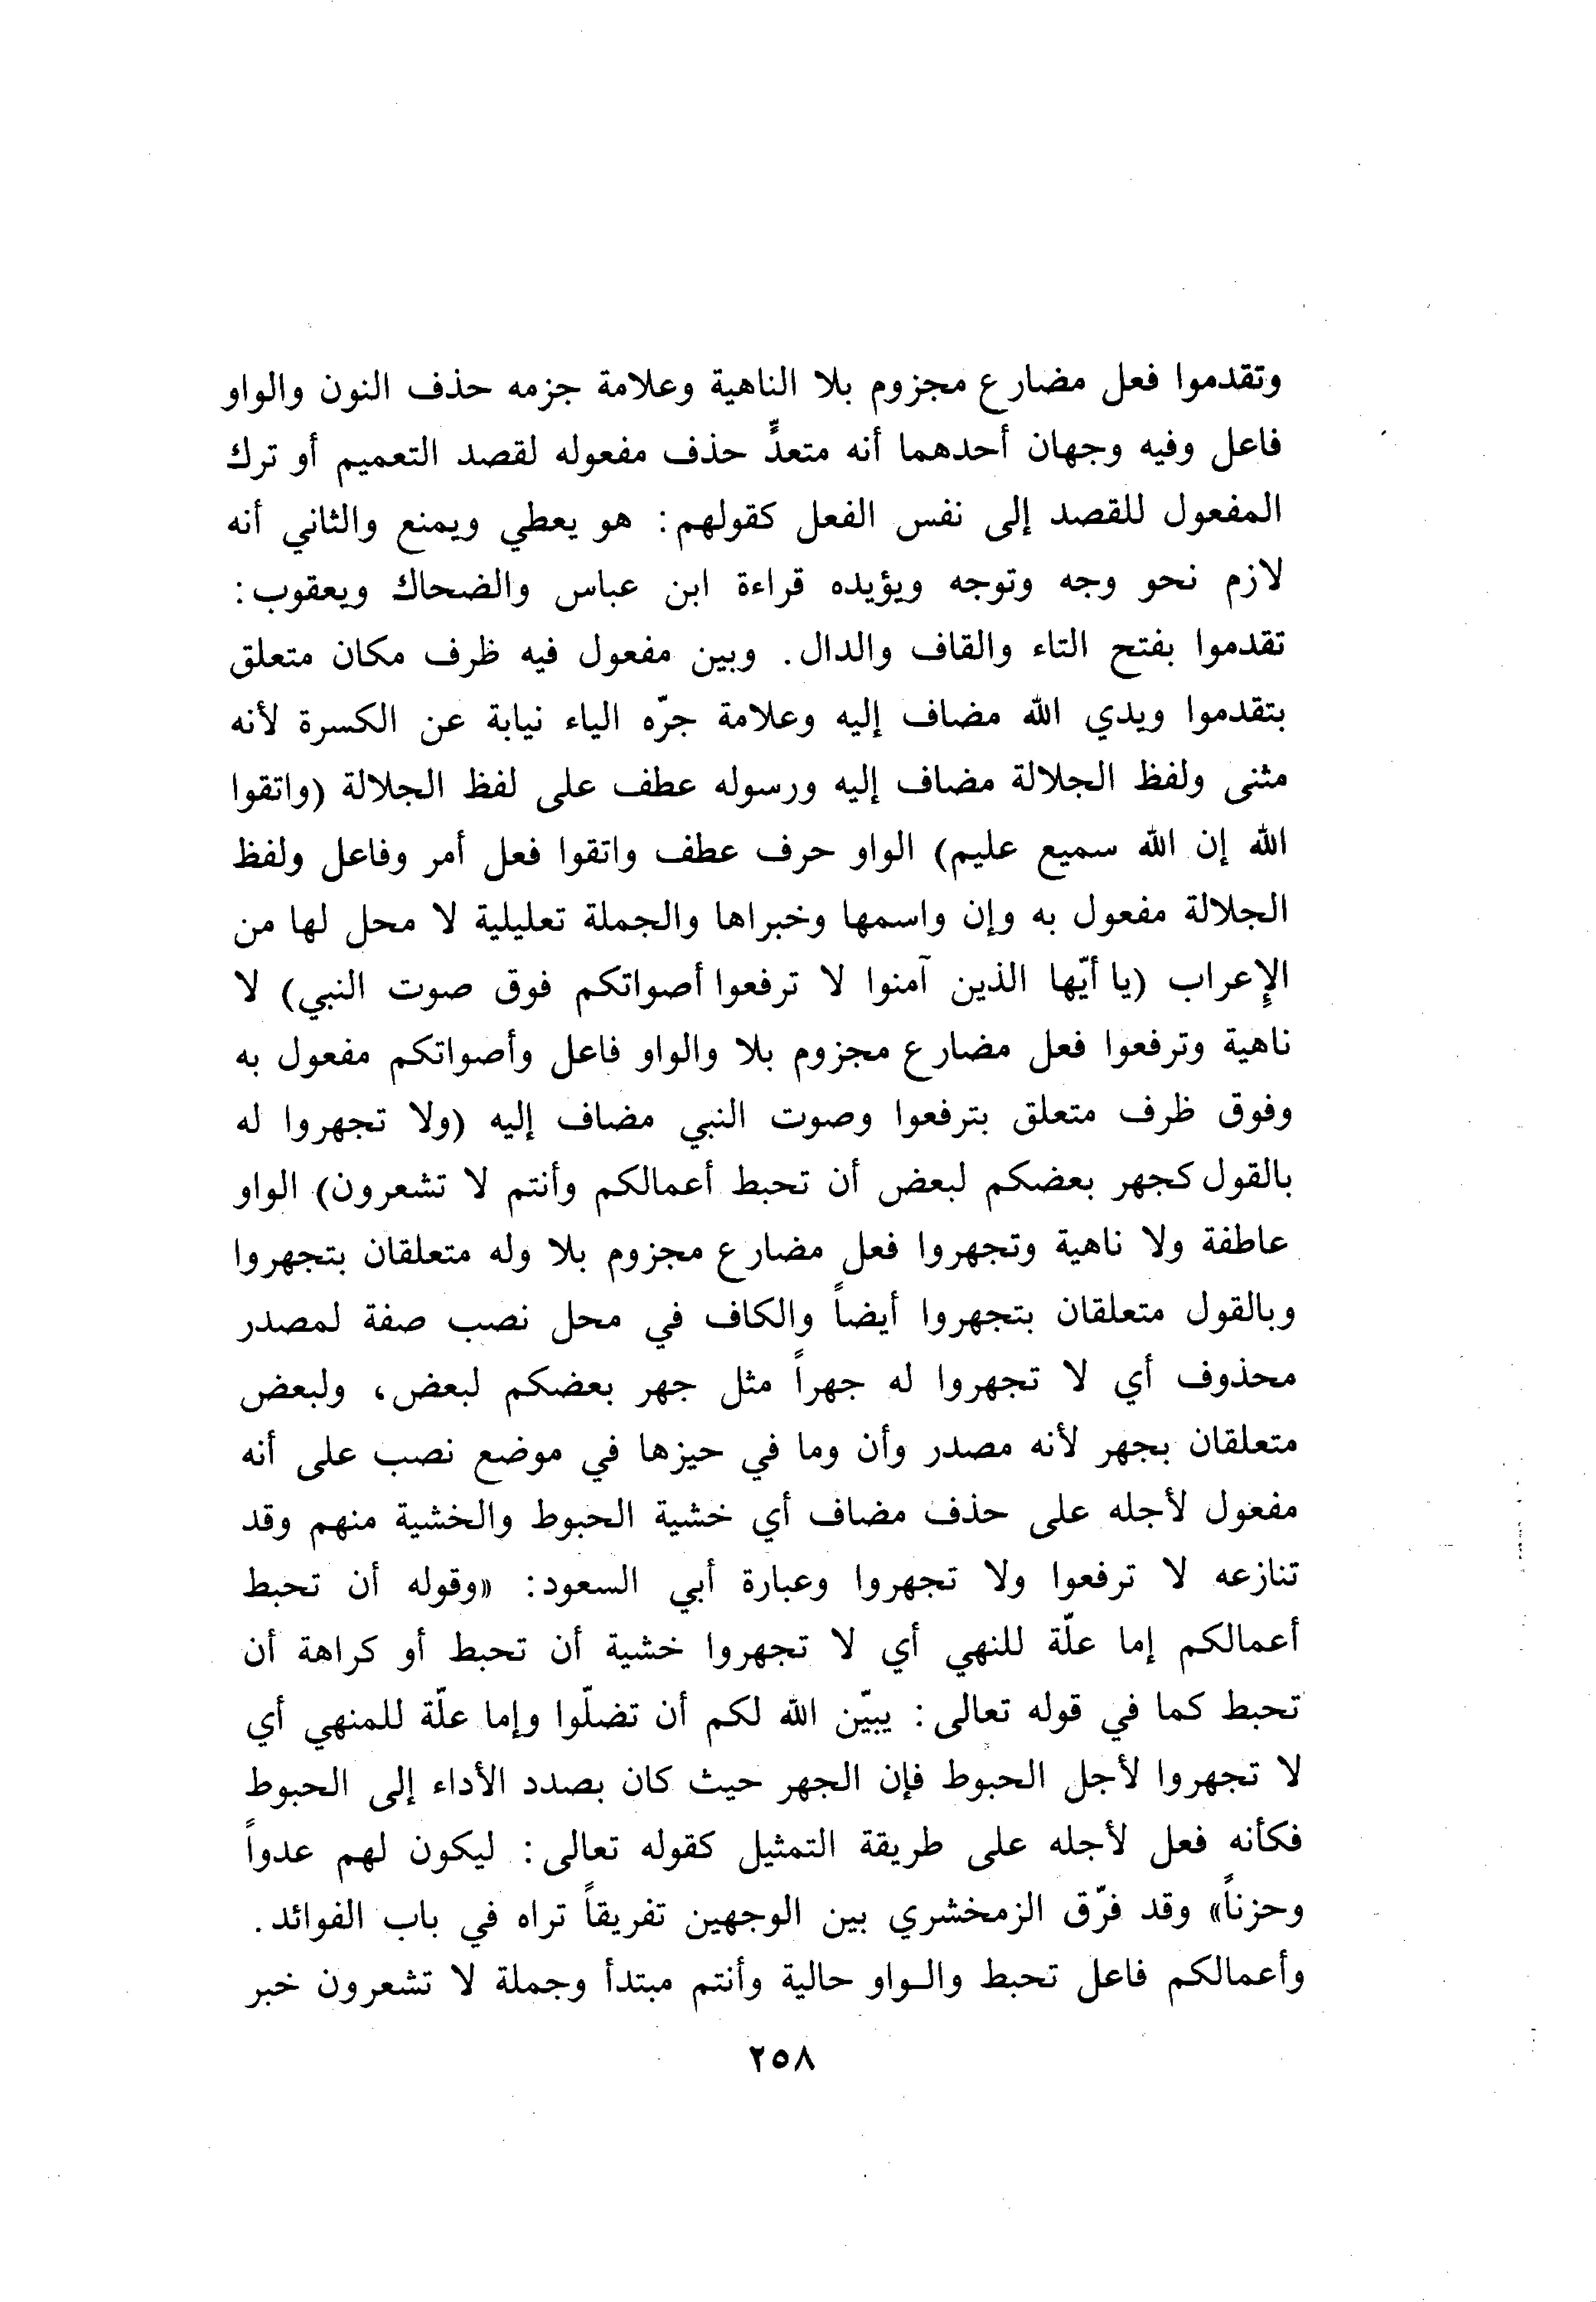 وتقدموا فعل مضارع مجزوم بلا الناهية وعلامة جزمه حذف النون والواو
فاعل وفيه وجهان أحدهما أنه متعدٍّ حذف مفعوله لقصد التعميم أو ترك
المفعول للقصد إلى نفس الفعل كقولهم: هو يعطي ويمنع والثاني أنه
لازم نحو وجه وتوجه ويؤيده قراءة ابن عباس والضحاك ويعقوب:
تقدموا بفتح التاء والقاف والدال. وبين مفعول فيه ظرف مكان متعلق
بتقدموا ويدي الله مضاف إليه وعلامة جرّه الياء نيابة عن الكسرة لأنه
مثنى ولفظ الجلالة مضاف إليه ورسوله عطف على لفظ الجلالة (واتقوا
الله إن الله سميع عليم) الواو حرف عطف واتقوا فعل أمر وفاعل ولفظ
الجلالة مفعول به وإن واسمها وخبراها والجملة تعليلية لا محل لها من
الإعراب (يا أيّها الذين آمنوا لا ترفعوا أصواتكم فوق صوت النبي) لا
ناهية وترفعوا فعل مضارع مجزوم بلا والواو فاعل وأصواتكم مفعول به
وفوق ظرف متعلق بترفعوا وصوت النبي مضاف إليه (ولا تجهروا له
بالقول كجهر بعضكم لبعض أن تحبط أعمالكم وأنتم لا تشعرون) الواو
عاطفة ولا ناهية وتجهروا فعل مضارع مجزوم بلا وله متعلقان بتجهروا
وبالقول متعلقان بتجهروا أيضاً والكاف في محل نصب صفة لمصدر
محذوف أي لا تجهروا له جهراً مثل جهر بعضكم لبعض، ولبعض
متعلقان بجهر لأنه مصدر وأن وما في حيزها في موضع نصب على أنه
مفعول لأجله على حذف مضاف أي خشية الحبوط والخشية منهم وقد
تنازعه لا ترفعوا ولا تجهروا وعبارة أبي السعود: «وقوله أن تحبط
أعمالكم إما علّة للنهي أي لا تجهروا خشية أن تحبط أو كراهة أن
تحبط كما في قوله تعالى: يبيّن الله لكم أن تضلّوا وإما علّة للمنهي أي
لا تجهروا لأجل الحبوط فإن الجهر حيث كان بصدد الأداء إلى الحبوط
فكأنه فعل لأجله على طريقة التمثيل كقوله تعالى: ليكون لهم عدواً
وحزناً» وقد فرّق الزمخشري بين الوجهين تفريقاً تراه في باب الفوائد.
وأعمالكم فاعل تحبط والواو حالية وأنتم مبتدأ وجملة لا تشعرون خبر
٢٥٨